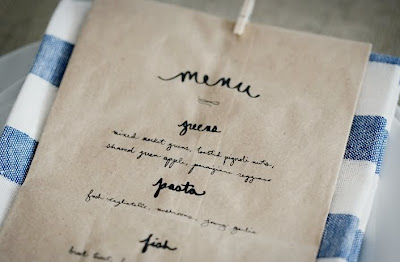 menu
greens
mixed market greens, toasted pignoli nuts,
shaved green apple, parmigiano reggiano
pasta
fresh tagliatelle, mushrooms, young garlic
fish